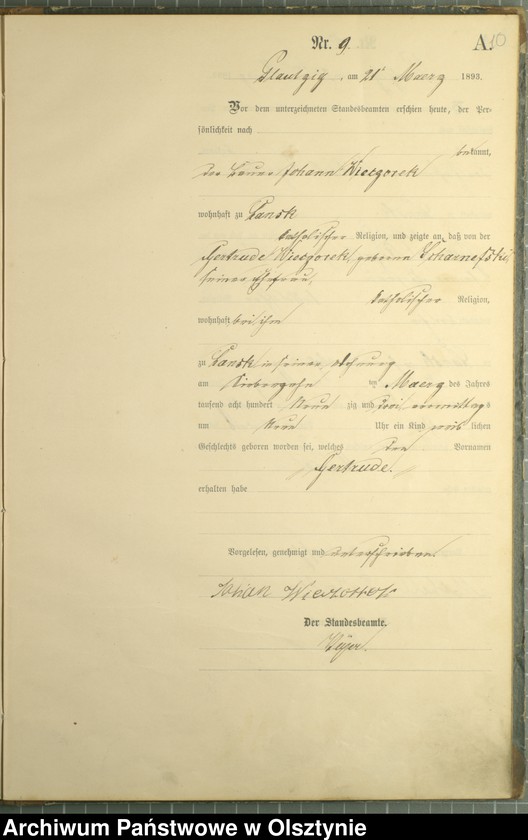 Nr. 9. A. 10
am 21t Maerz 1893.
Vor dem unterzeichneten Standesbeamten erschien heute, der Per-
sönlichkeit nach
bekannt,
der Bauer Johann Wieczorek
wohnhaft zu Lansk
katholischer Religion, und zeigte an, daß von der
Gertrude Wieczorek, geborene
seiner Ehefrau,
katholischer Religion,
wohnhaft bei ihm
zu Lansk in seiner Wohnung
am Siebenzehn ten Maerz des Jahres
tausend acht hundert Neun zig und drei vormittags
um Neun Uhr ein Kind weib lichen
Geschlechts geboren worden sei, welches den Vornamen
Gertrude.
erhalten habe
Vorgelesen, genehmigt und unterschrieben.
Johan Wieczorrek
Der Standesbeamte.
Archiwum Państwowe w Olsztynie